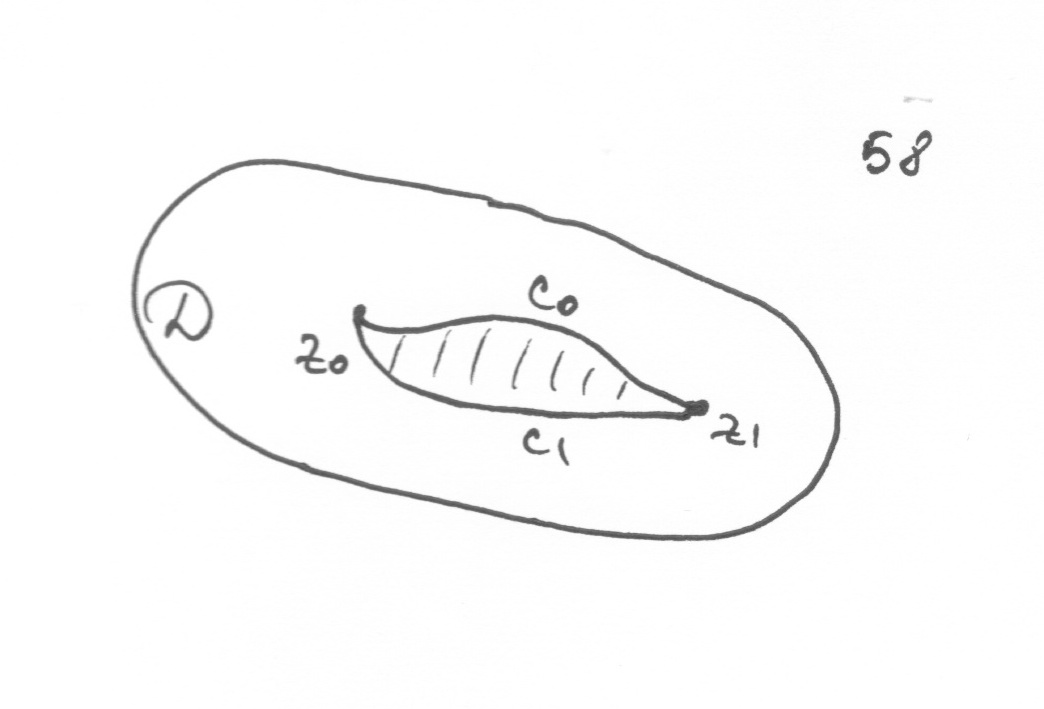 58
C₀
D
Z₀
Z₁
C₁